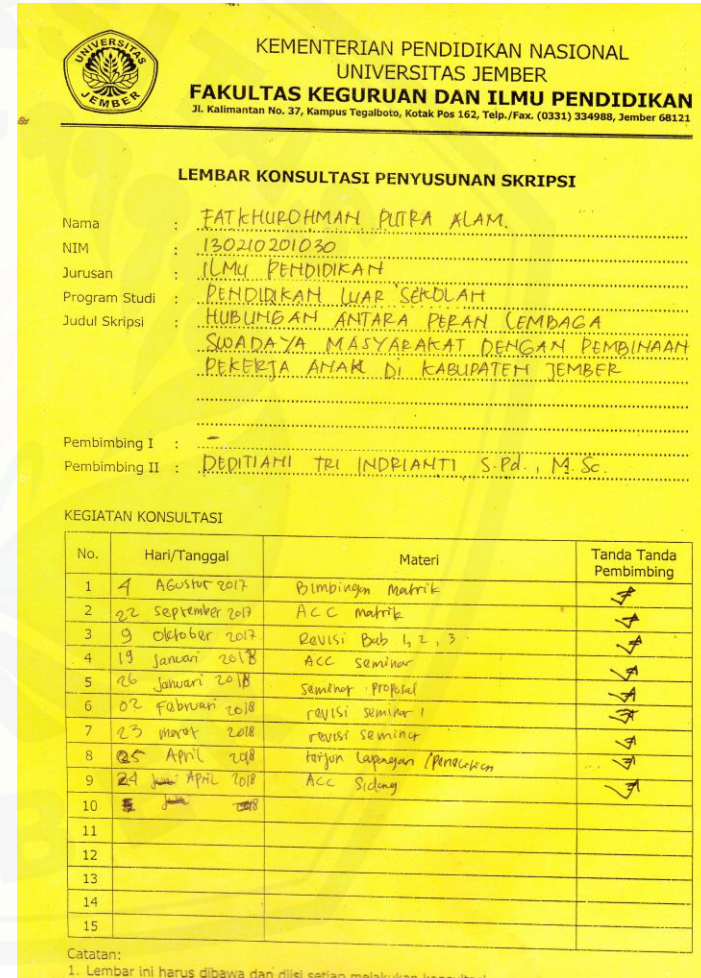 UNIVERSITAS
JEMBER
KEMENTERIAN PENDIDIKAN NASIONAL
UNIVERSITAS JEMBER
FAKULTAS KEGURUAN DAN ILMU PENDIDIKAN
Jl. Kalimantan No. 37, Kampus Tegalboto, Kotak Pos 162, Telp./Fax. (0331) 334988, Jember 68121
LEMBAR KONSULTASI PENYUSUNAN SKRIPSI
Nama : FATKHUROHMAN PUTRA ALAM.
NIM : 130210201030
Jurusan : ILMU PENDIDIKAN
Program Studi : PENDIDIKAN LUAR SEKOLAH
Judul Skripsi : HUBUNGAN ANTARA PERAN LEMBAGA
SWADAYA MASYARAKAT DENGAN PEMBINAAN
PEKERJA ANAK DI KABUPATEN JEMBER
Pembimbing I : -
Pembimbing II : DEDITIANI TRI INDRIANTI S.Pd., M.Sc.
KEGIATAN KONSULTASI
No. Hari/Tanggal Materi Tanda Tanda Pembimbing
1 4 Agustus 2017 Bimbingan Matrik
2 22 September 2017 ACC matrik
3 9 Oktober 2017 Revisi Bab 1, 2, 3
4 19 Januari 2018 ACC seminar
5 26 Januari 2018 Seminar Proposal
6 02 Februari 2018 revisi seminar 1
7 23 maret 2018 revisi seminar
8 25 April 2018 terjun Lapangan /
9 24 April 2018 Acc Sidang
10
11
12
13
14
15
Catatan:
1. Lembar ini harus dibawa dan diisi setiap melakukan konsultasi